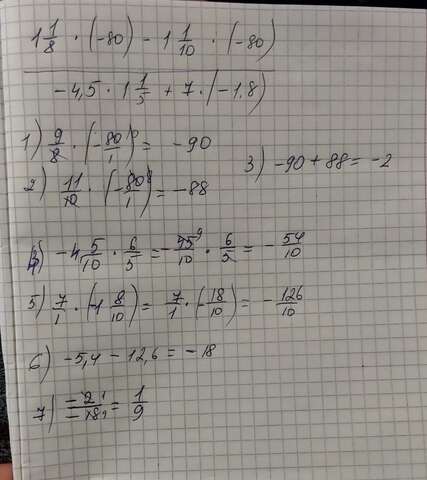 1 1/8 · (-80) - 1 1/10 · (-80)
-4,5 · 1 1/5 + 7 · (-1,8)
1) 9/8 · (-80/1) = -90
2) 11/10 · (-80/1) = -88
3) -90 + 88 = -2
4) -4 5/10 · 6/5 = -45/10 · 6/5 = -54/10
5) 7/1 · (-1 8/10) = 7/1 · (-18/10) = -126/10
6) -5,4 - 12,6 = -18
7) -2/-18 = 1/9